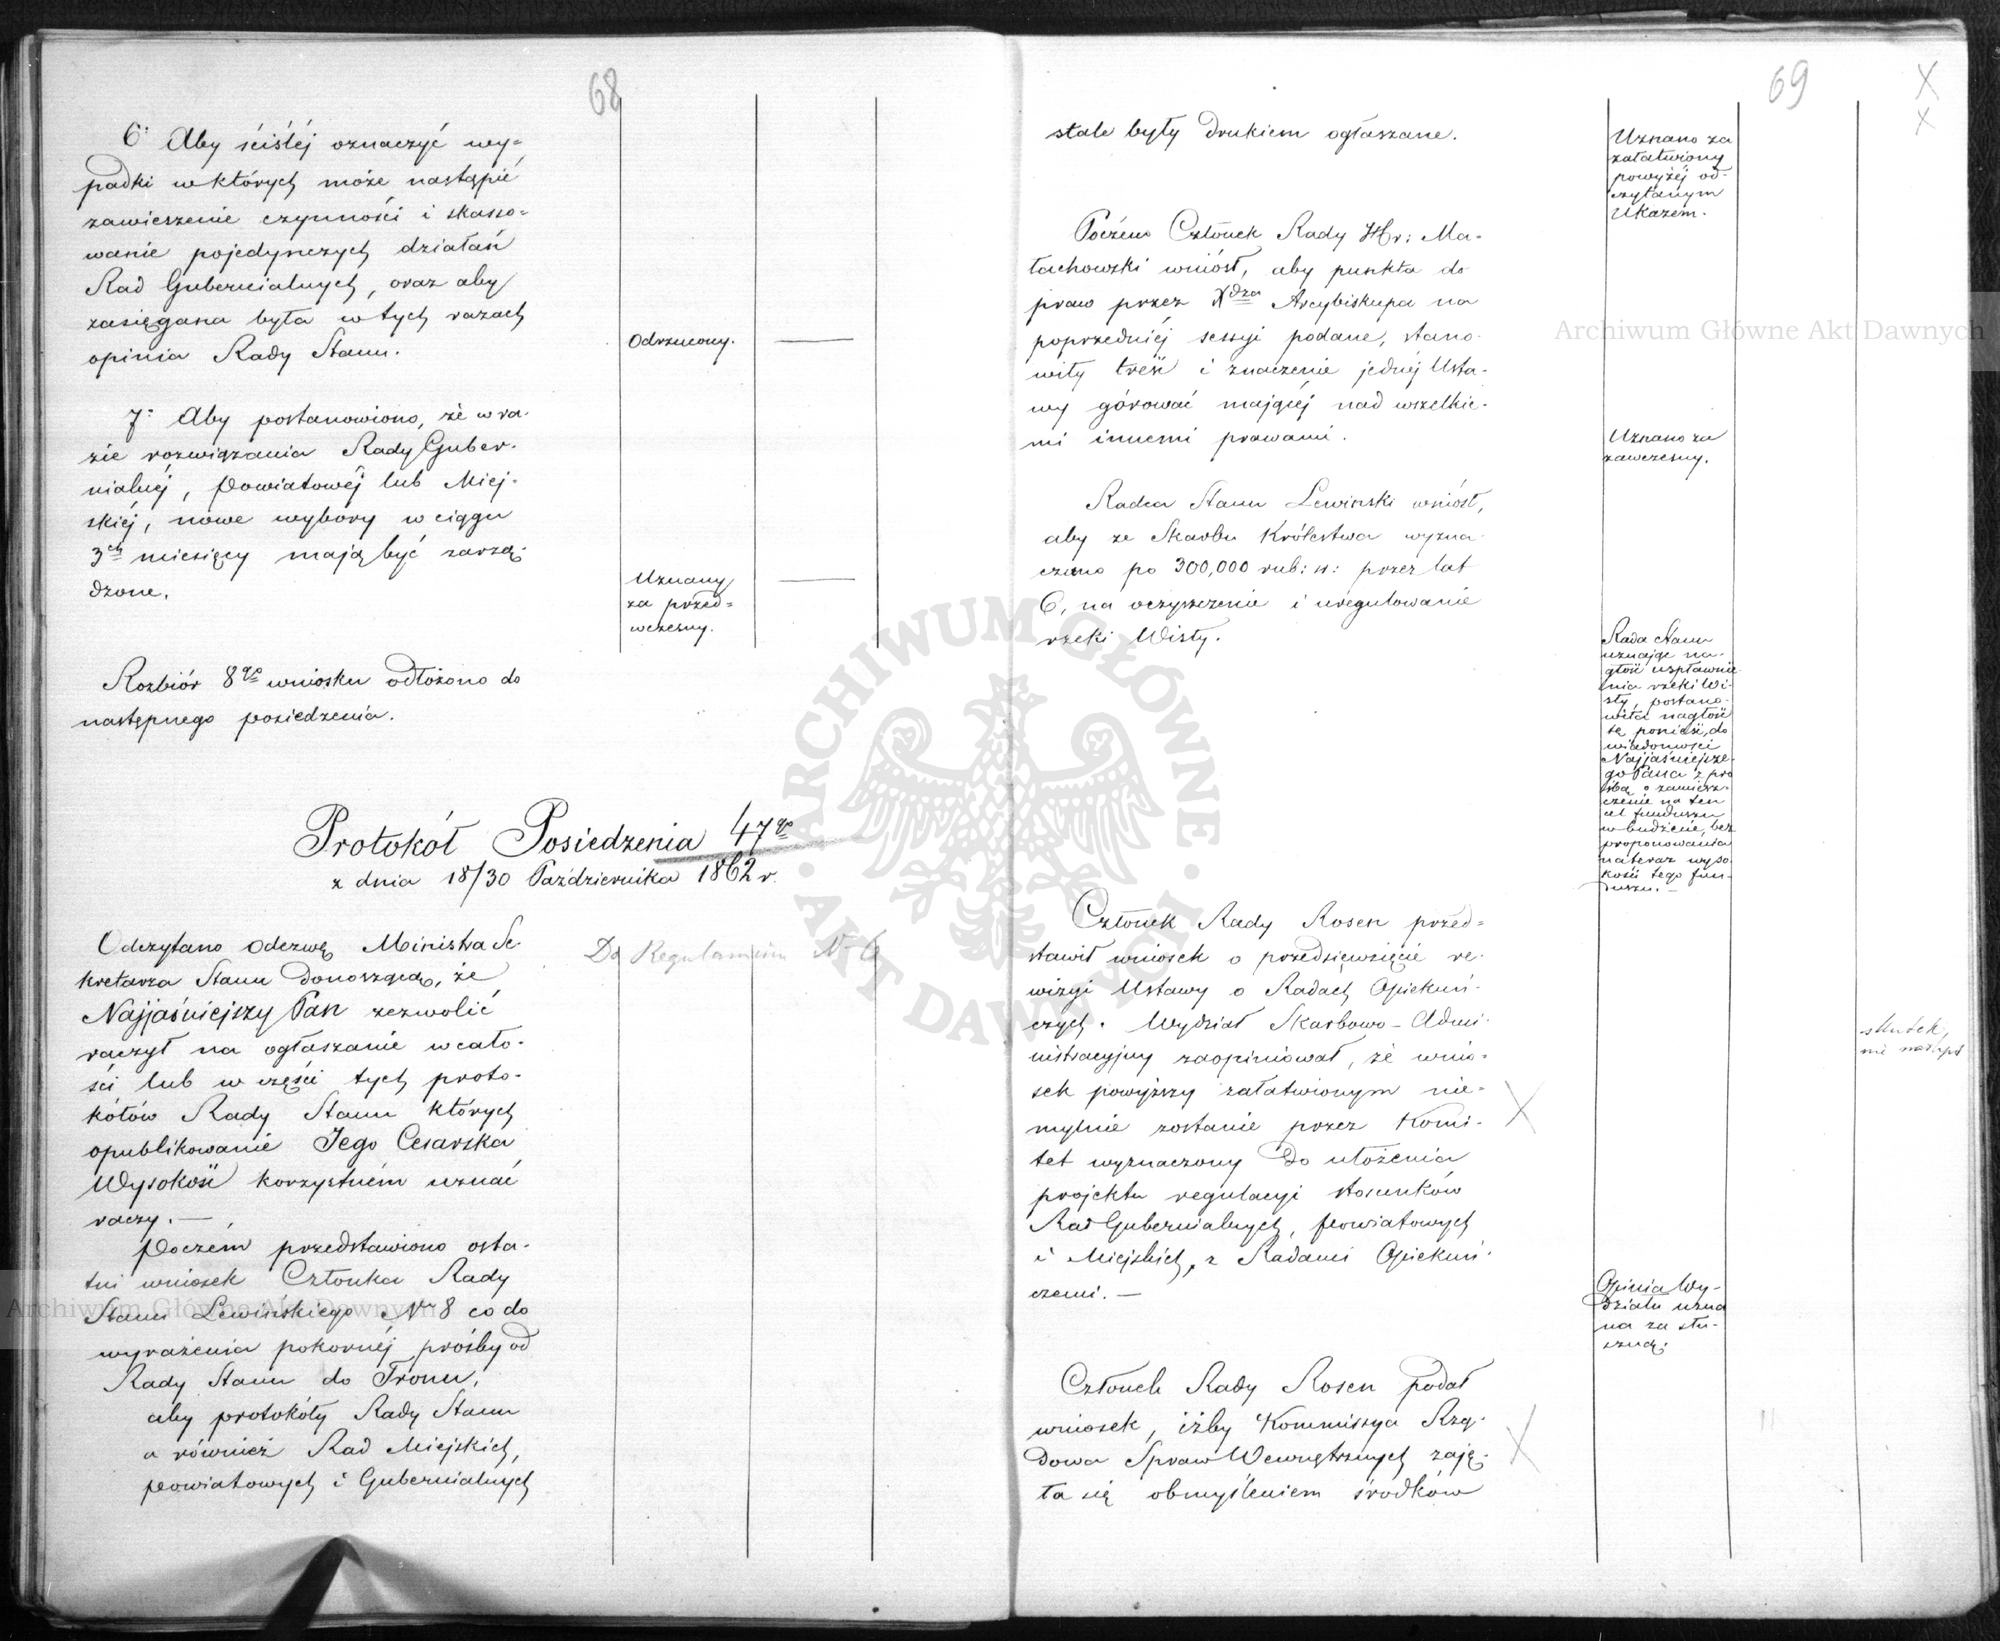 68
6° Aby ściśléj oznaczyć wy=
padki w których może nastąpić
zawieszenie czynności i skasso-
wanie pojedynczych działań
Rad Gubernialnych, oraz aby
zasięgana była w tych razach
opinia Rady Stanu.
Odrzucony.
7° Aby postanowiono, że w ra-
zie rozwiązania Rady Guber-
nialnéj, Powiatowéj lub Miej-
skiéj, nowe wybory w ciągu
3ch miesięcy mają być zarzą-
dzone.
Uznany
za przed=
wczesny.
Rozbiór 8go wniosku odłożono do
następnego posiedzenia.
Protokół Posiedzenia 47go
z dnia 18/30 Października 1862 r.
Odczytano odezwę Ministra Se-
kretarza Stanu donoszącą, że
Najjaśniejszy Pan zezwolić
raczył na ogłaszanie w cało-
ści lub w części tych proto-
kółów Rady Stanu których
opublikowanie Jego Cesarska
Wysokość korzystném uznać
raczy. —
Do Regulaminu N° 6
Poczém przedstawiono osta-
tni wniosek Członka Rady
Stanu Lewińskiego Nr 8 co do
wyrażenia pokornéj prośby od
Rady Stanu do Tronu,
aby protokóły Rady Stanu
a również Rad Miejskich,
Powiatowych i Gubernialnych
69
stale były drukiem ogłaszane.
Uznano za
załatwiony
powyżéj od-
czytanym
Ukazem.
Poczém Członek Rady Hr: Ma-
łachowski wniósł, aby punkta do
praw przez Xdza Arcybiskupa na
poprzedniéj sessyi podane, stano-
wiły treść i znaczenie jednéj Usta-
wy górować mającéj nad wszelkie-
mi innemi prawami.
Uznano za
zawczesny.
Radca Stanu Lewiński wniósł,
aby ze Skarbu Królestwa wyzna-
czono po 300,000 rub: sr: przez lat
6, na oczyszczenie i uregulowanie
rzeki Wisły.
Rada Stanu
uznając na-
głość uspławnie-
nia rzeki Wi-
sły, postano-
wiła nagłość
tę ponieść, do
wiadomości
Najjaśniejsze-
go Pana z pro
śbą o zamiesz-
czenie na ten
cel funduszu
w budżecie, bez
proponowania
na teraz wyso-
kości tego fun-
duszu. —
Członek Rady Rosen przed=
stawił wniosek o przedsięwzięcie re-
wizyi Ustawy o Radach Opiekuń-
czych. Wydział Skarbowo-Admi-
nistracyjny zaopiniował, że wnio-
sek powyższy załatwionym nie-
mylnie zostanie przez Komi-
tet wyznaczony do ułożenia
projektu regulacyi stosunków
Rad Gubernialnych, Powiatowych
i Miejskich, z Radami Opiekuń-
czemi. —
skutek
nie nastąpił
Opinia Wy-
działu uzna
na za słu-
szną.
Członek Rady Rosen podał
wniosek, iżby Kommissya Rzą-
dowa Spraw Wewnętrznych zaję-
ła się obmyśleniem środków
Archiwum Główne Akt Dawnych
Archiwum Główne Akt Dawnych
ARCHIWUM GŁÓWNE
AKT DAWNYCH